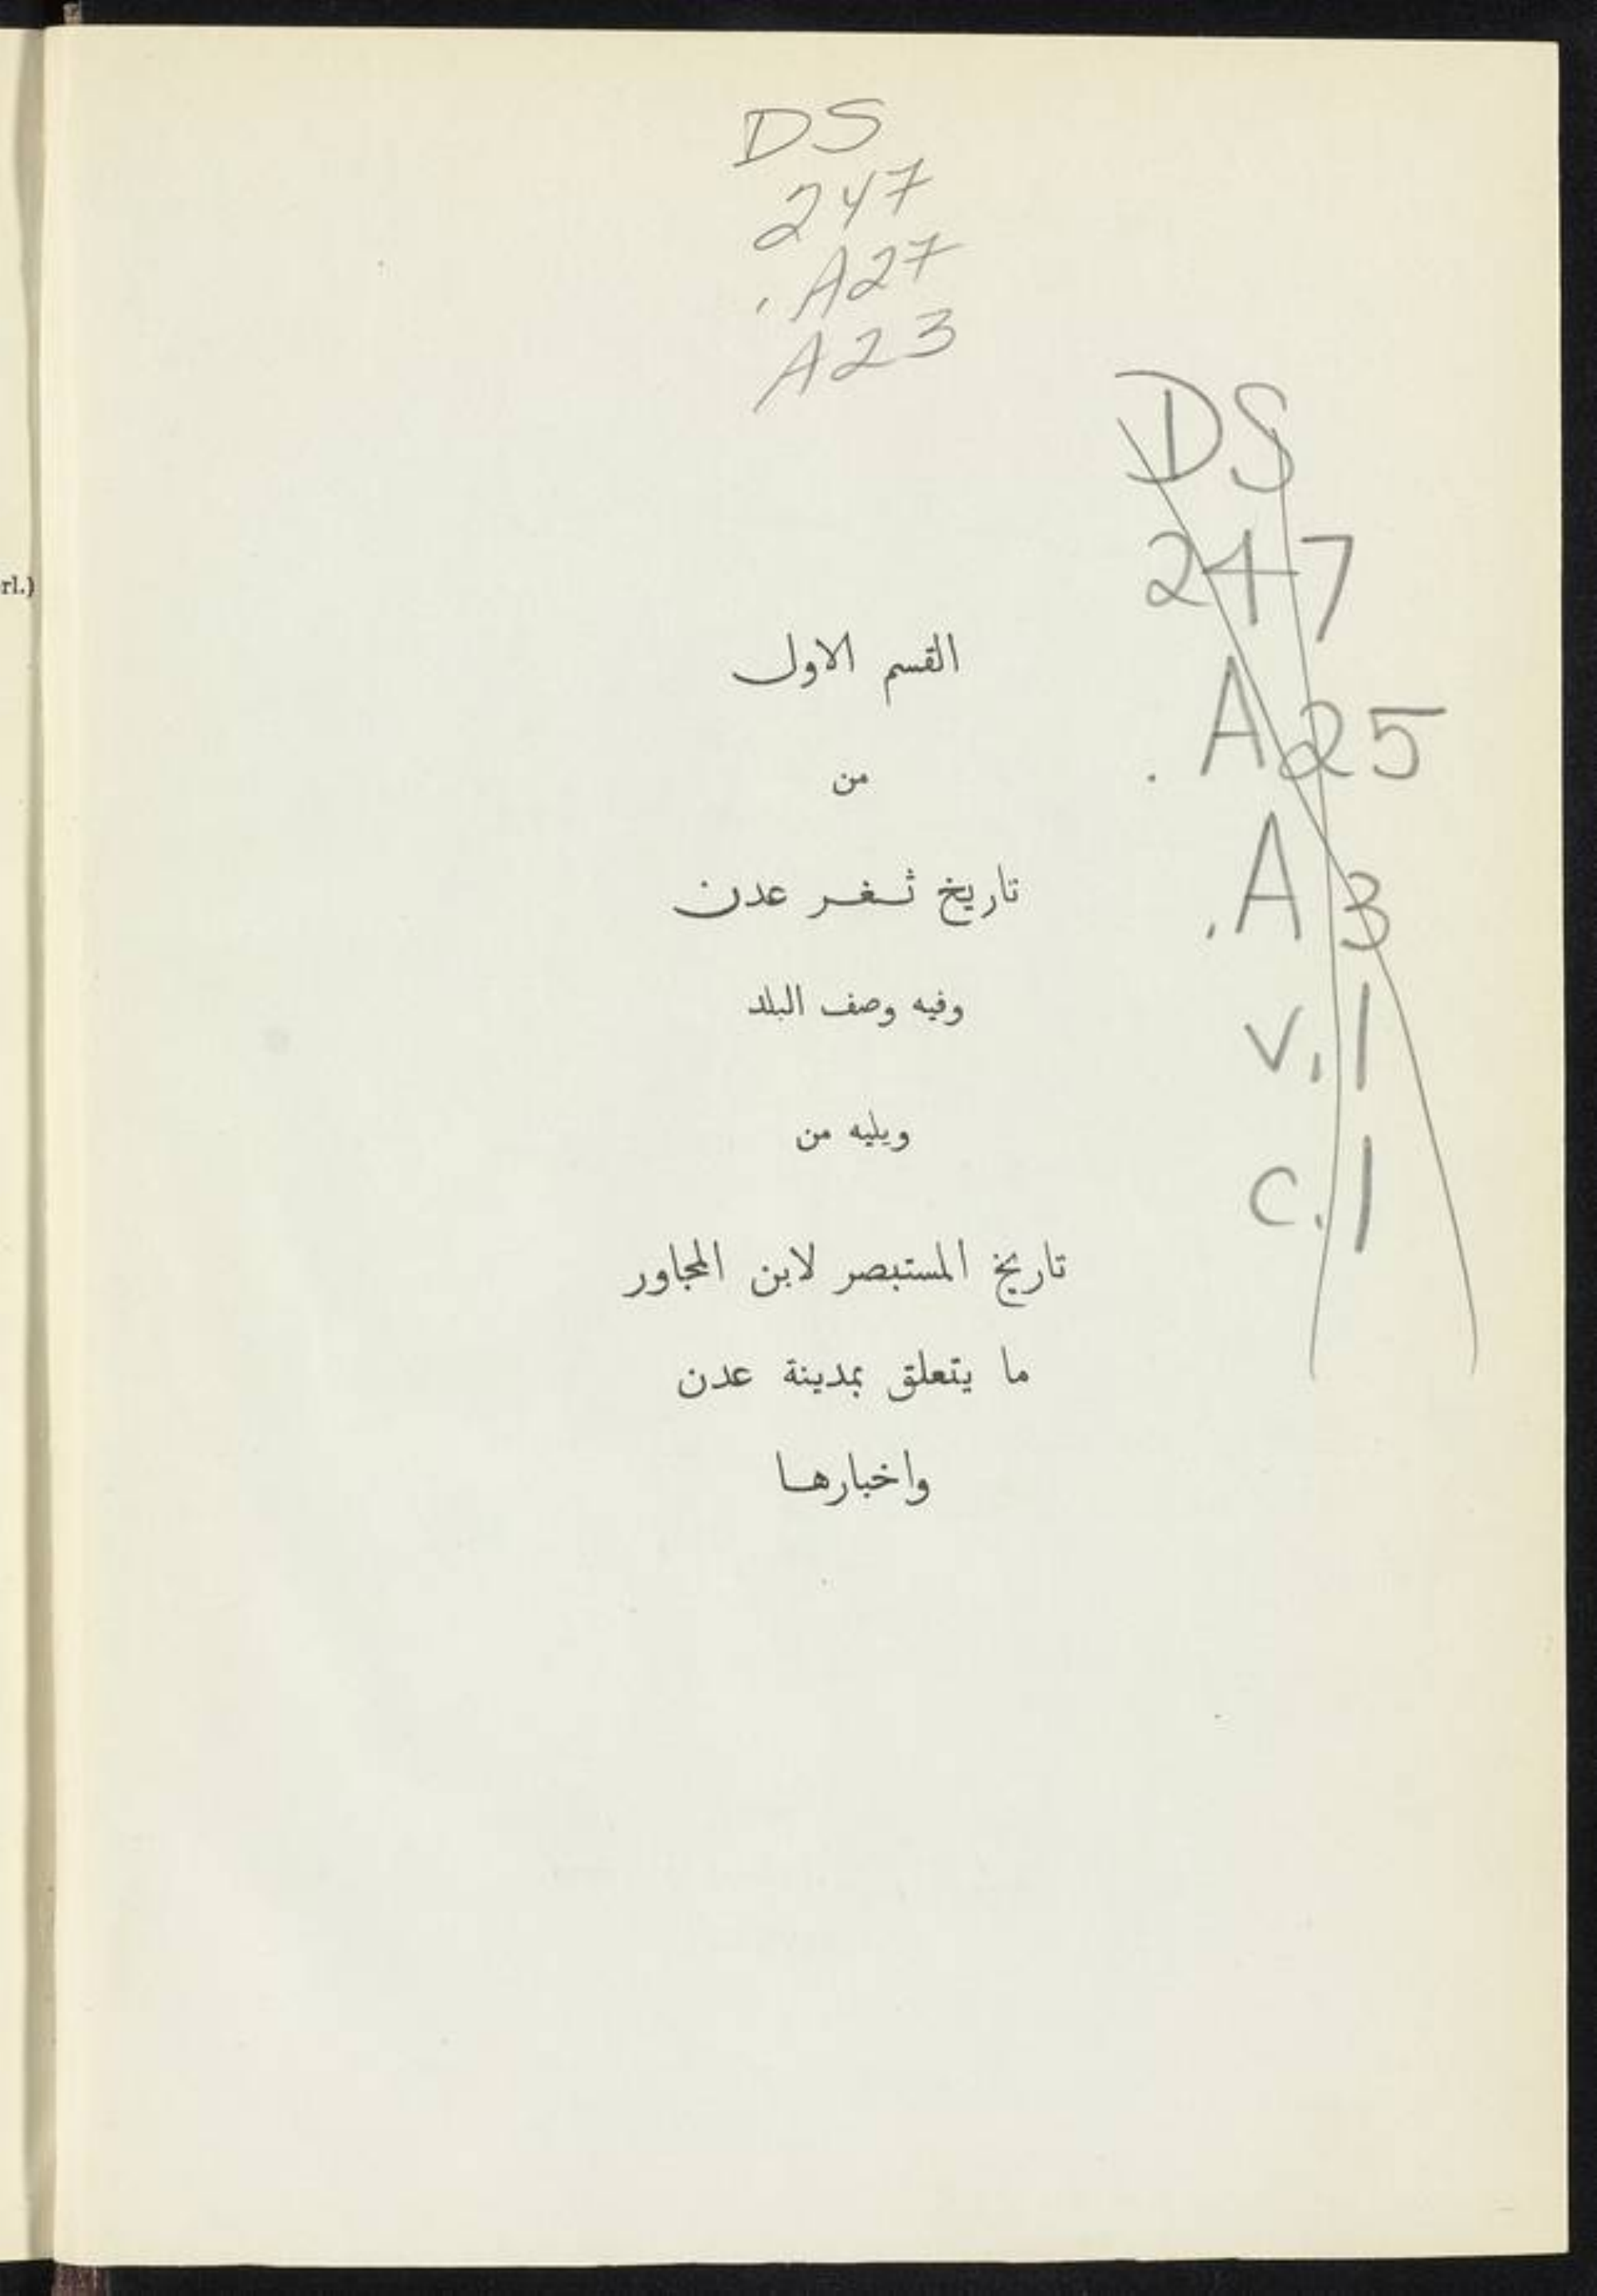 DS
247
.A27
A23
DS
247
.A25
.A3
v.1
c.1
rl.)
القسم الاول
من
تاريخ ثغر عدن
وفيه وصف البلد
ويليه من
تاريخ المستبصر لابن المجاور
ما يتعلق بمدينة عدن
واخبارها